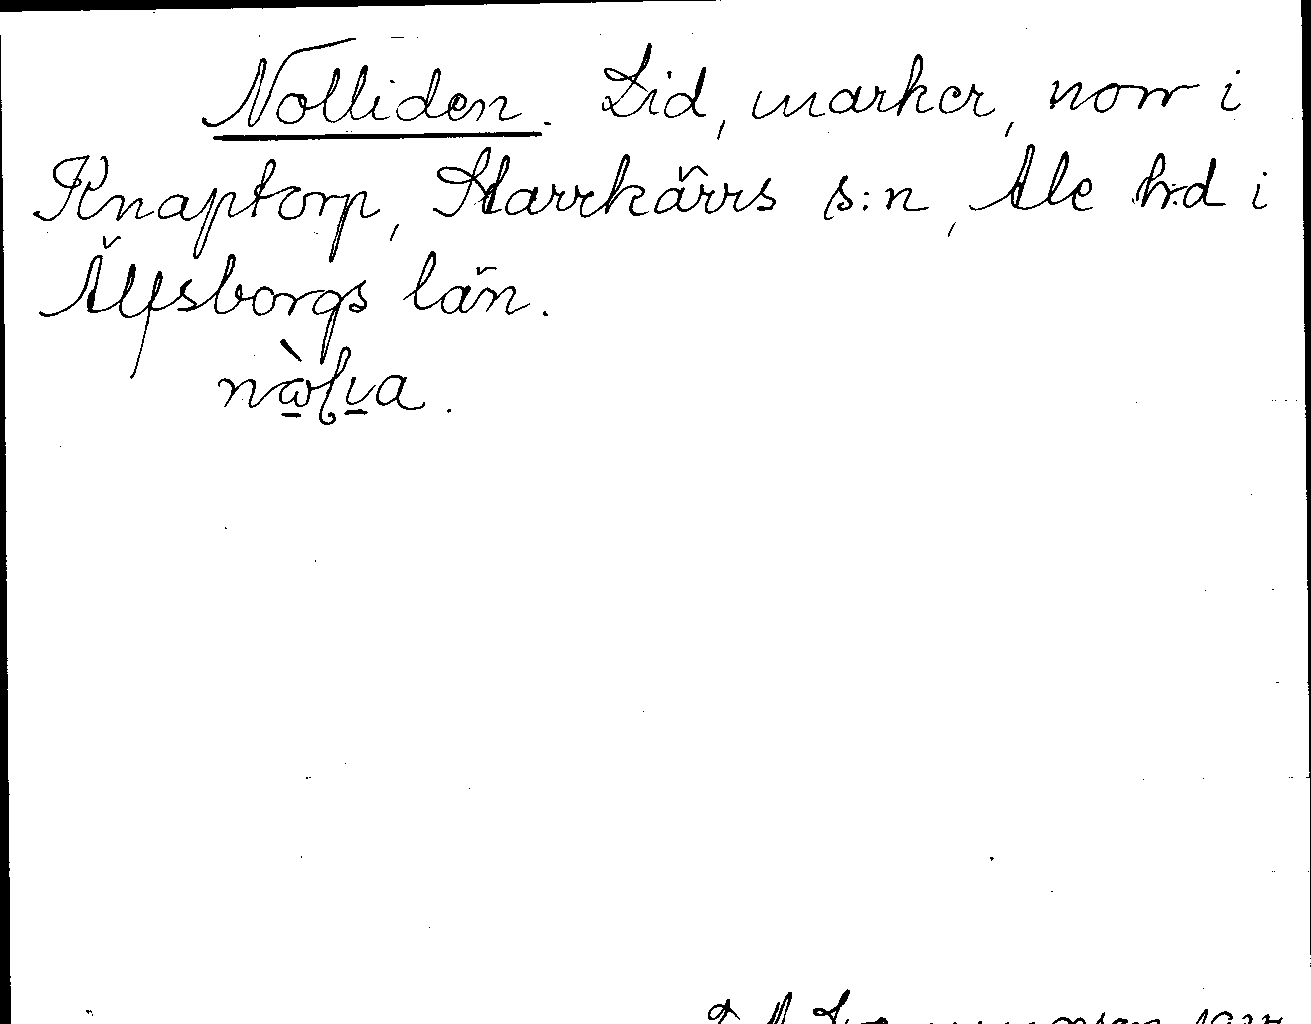 Nolliden. Lid, marker, norr i
Knaptorp, Starrkärrs s:n, Ale h:d i
Älfsborgs län.